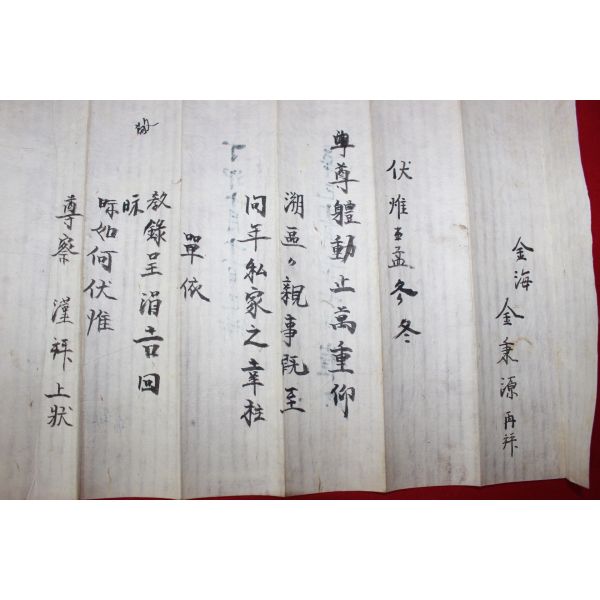 金海 金秉源 再拜
伏惟孟冬冬
尊體動止萬重仰
溯區〃親事旣至
問年私家之幸柱
單依
教錄呈涓吉回
眎
眎如何伏惟
尊察 謹拜 上狀